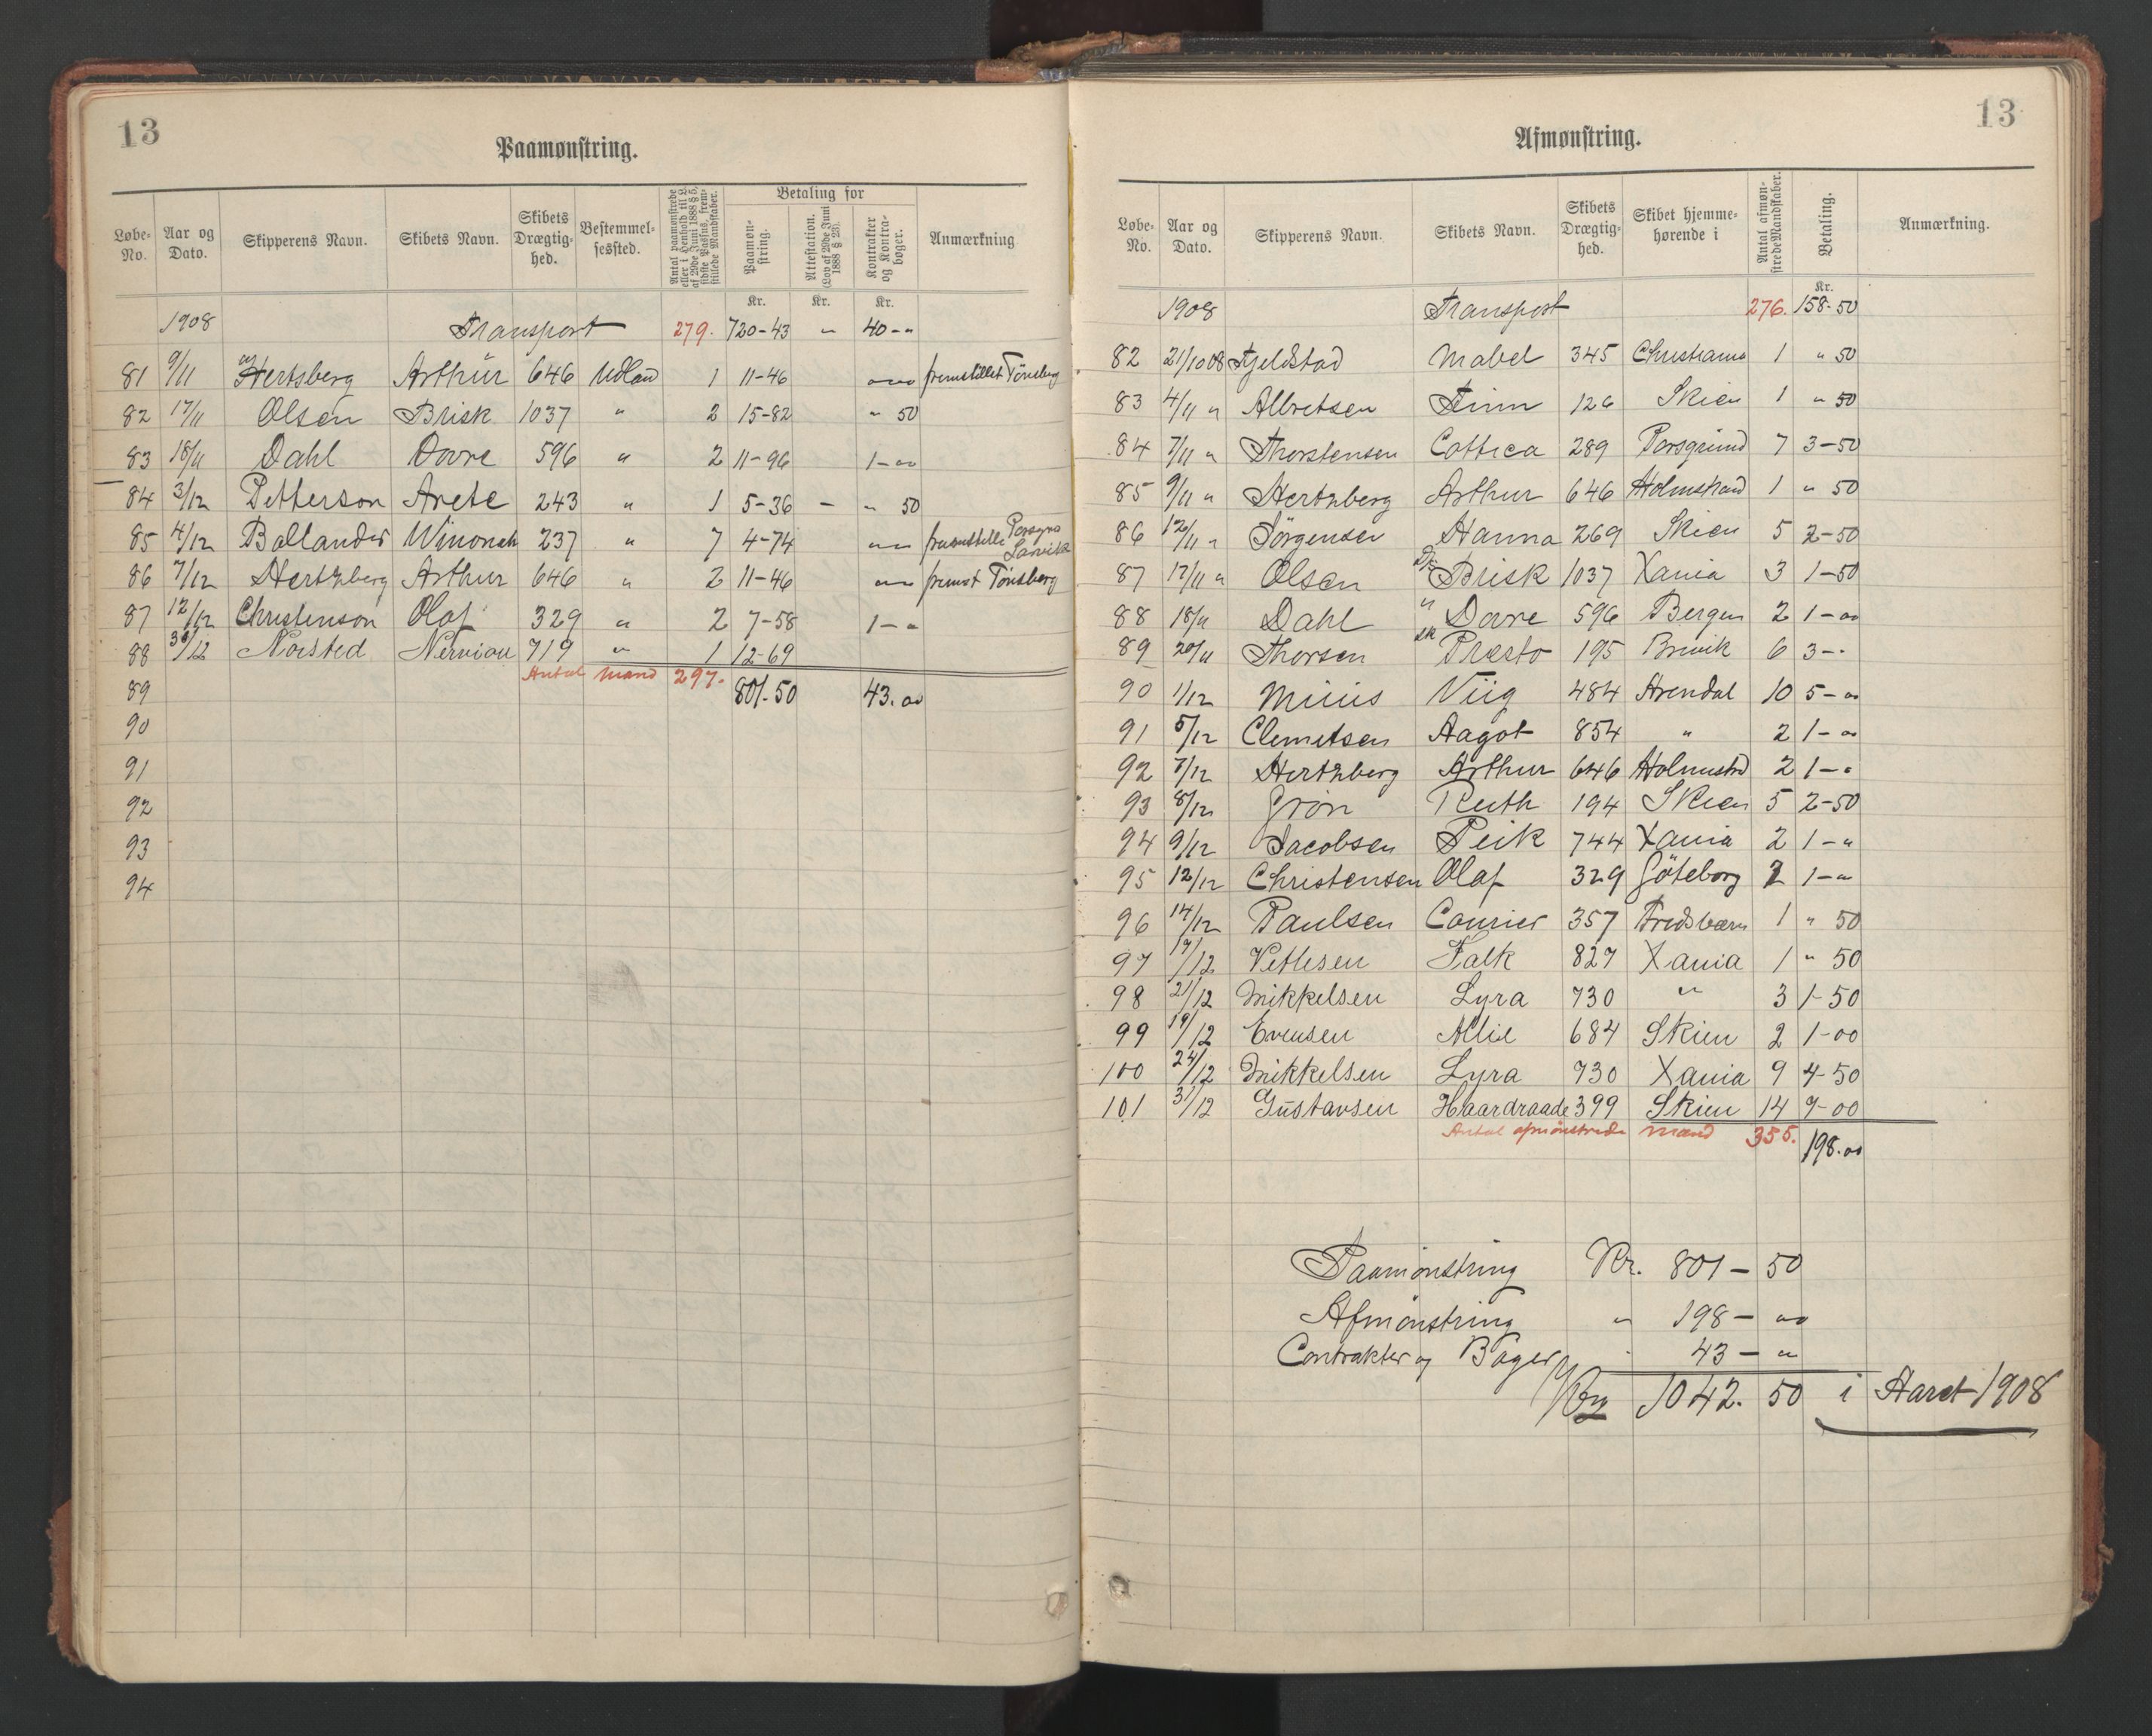 13
Paamønstring.
Løbe-No. Aar og Dato. Skipperens Navn. Skibets Navn. Skibets Drægtig-hed. Bestemmel-sessted. Antal paamønstrede eller i Henhold til L. af 29de Juni 1888 § 5, sidste Passus, frem-stillede Mandskaber. Betaling for Paamøn-string. Attestation. (Lov af 29de Juni 1888 § 23). Kontrakter og Kontra-bøger. Anmærkning
Kr. Kr. Kr.
1908 Transport 279. 720-43 " 40-"
81 9/11 Hertsberg Arthur 646 Udland 1 11-46 fremstillet Tönsberg
82 17/11 Olsen Brisk 1037 " 2 15-82 " 50
83 18/11 Dahl Dovre 596 " 2 11-96 1-00
84 3/12 Petterson Arete 243 " 1 5-36 - " 50
85 4/12 Ballander Winonah 237 " 7 4-74 Porsgrs Larvik
86 7/12 Hertzberg Arthur 646 " 2 11-46 fremst Tönsberg
87 12/12 Christenson Olaf 329 " 2 7-58 1-"
88 30/12 Norsted 719 " 1 12-69
Antal mand 297.
89 801.50 43.00
90
91
92
93
94
13
Afmønstring.
Løbe-No. Aar og Dato. Skipperens Navn. Skibets Navn. Skibets Drægtig-hed. Skibet hjemme-hørende i Antal afmøn-strede Mandskaber. Betaling. Anmærkning.
Kr.
1908 Transport 276. 158-50
82 21/10 08 Fjeldstad Mabel 345 Christiania 1 " 50
83 4/11 " Albretsen Finn 126 Skien 1 " 50
84 7/11 " Thorstensen Cottica 289 Porsgrund 7 3-50
85 9/11 " Hertzberg Arthur 646 Holmstrand 1 " 50
86 12/11 " Jörgensen Hanna 269 Skien 5 2-50
87 17/11 " Olsen D/S Brisk 1037 Xania 3 1-50
88 18/11 Dahl " Dovre 596 Bergen 2 1-00
89 20/11 Thorsen Sk Præsto 195 Brevik 6 3-"
90 1/12 Viig 484 Arendal 10 5-00
91 5/12 Clemetsen Aagot 854 " 2 1-00
92 7/12 Hertzberg Arthur 646 Holmestrd 2 1-"
93 8/12 Grön Ruth 194 Skien 5 2-50
94 9/12 Jacobsen Peik 744 Xania 2 1-"
95 12/12 Christensen Olaf 329 Göteborg 2 1-"
96 14/12 Paulsen Courier 357 Fredsværn 1 " 50
97 17/12 Vetlesen Falk 827 Xania 1 " 50
98 21/12 Mikkelsen Lyra 730 " 3 1-50
99 19/12 Evensen Allie 684 Skien 2 1-00
100 24/12 Mikkelsen Lyra 730 Xania 9 4-50
101 31/12 Gustavsen Haardraade 399 Skien 14 7-00
Antal afmönstrede mand 355. 198.00
Paamönstring Kr. 801-50
Afmönstring " 198-00
Contrakter og Bøger " 43-"
Kr 1042.50 i Aaret 1908